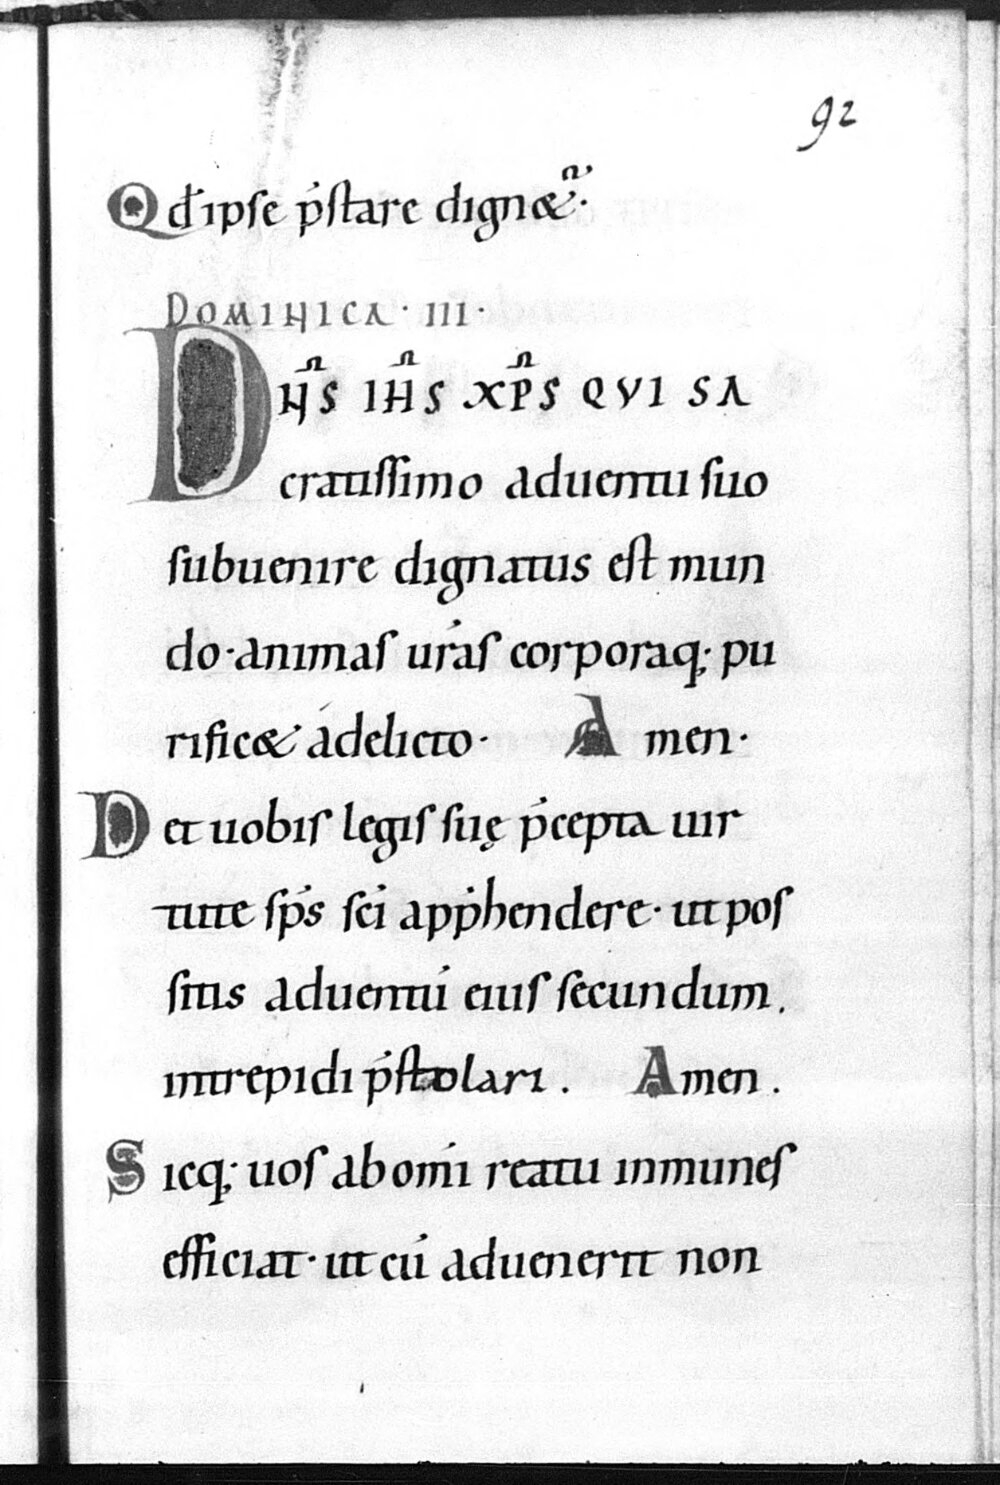 92
Qđ ipse p̄stare dign&ur̃.
DOMINICA · III ·
DN̄S IH̄S XP̄S QVI SA
cratissimo aduentu suo
subuenire dignatus est mun
do · animas ur̄as corporaq; pu
rific& a delicto · Amen ·
Det uobis legis suę p̄cepta uir
tute sp̄s sc̄i app̄hendere · ut pos
sitis aduentū eius secundum.
intrepidi p̄stolari . Amen .
Sicq; uos ab om̄i reatu inmunes
efficiat · ut cū aduenerit non